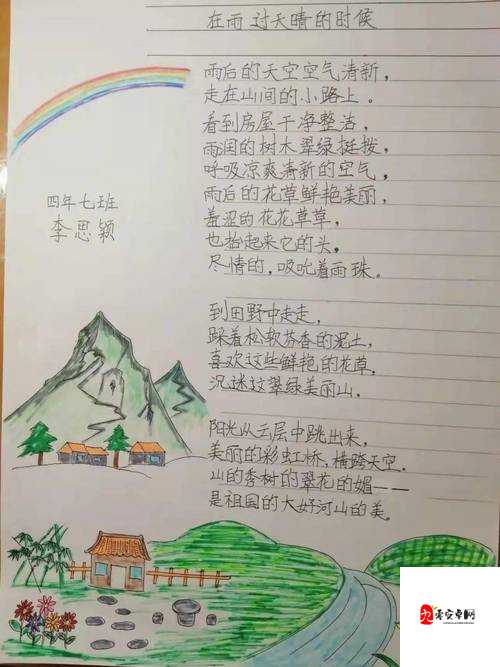 在雨过天晴的时候
雨后的天空空气清新，
走在山间的小路上。
看到房屋干净整洁，
雨润的树木翠绿挺拨，
呼吸凉爽清新的空气，
雨后的花草鲜艳美丽，
羞涩的花花草草，
也抬起来它的头，
尽情的，吸吮着雨珠。
四年七班
李思颖
到田野中走走，
踩着松软芬香的泥土，
喜欢这些鲜艳的花草，
沉迷这翠绿美丽山。
阳光从云层中跳出来，
美丽的彩虹桥，横跨天空.
山的秀树的翠花的媚——
是祖国的大好河山的美。
零安卓网